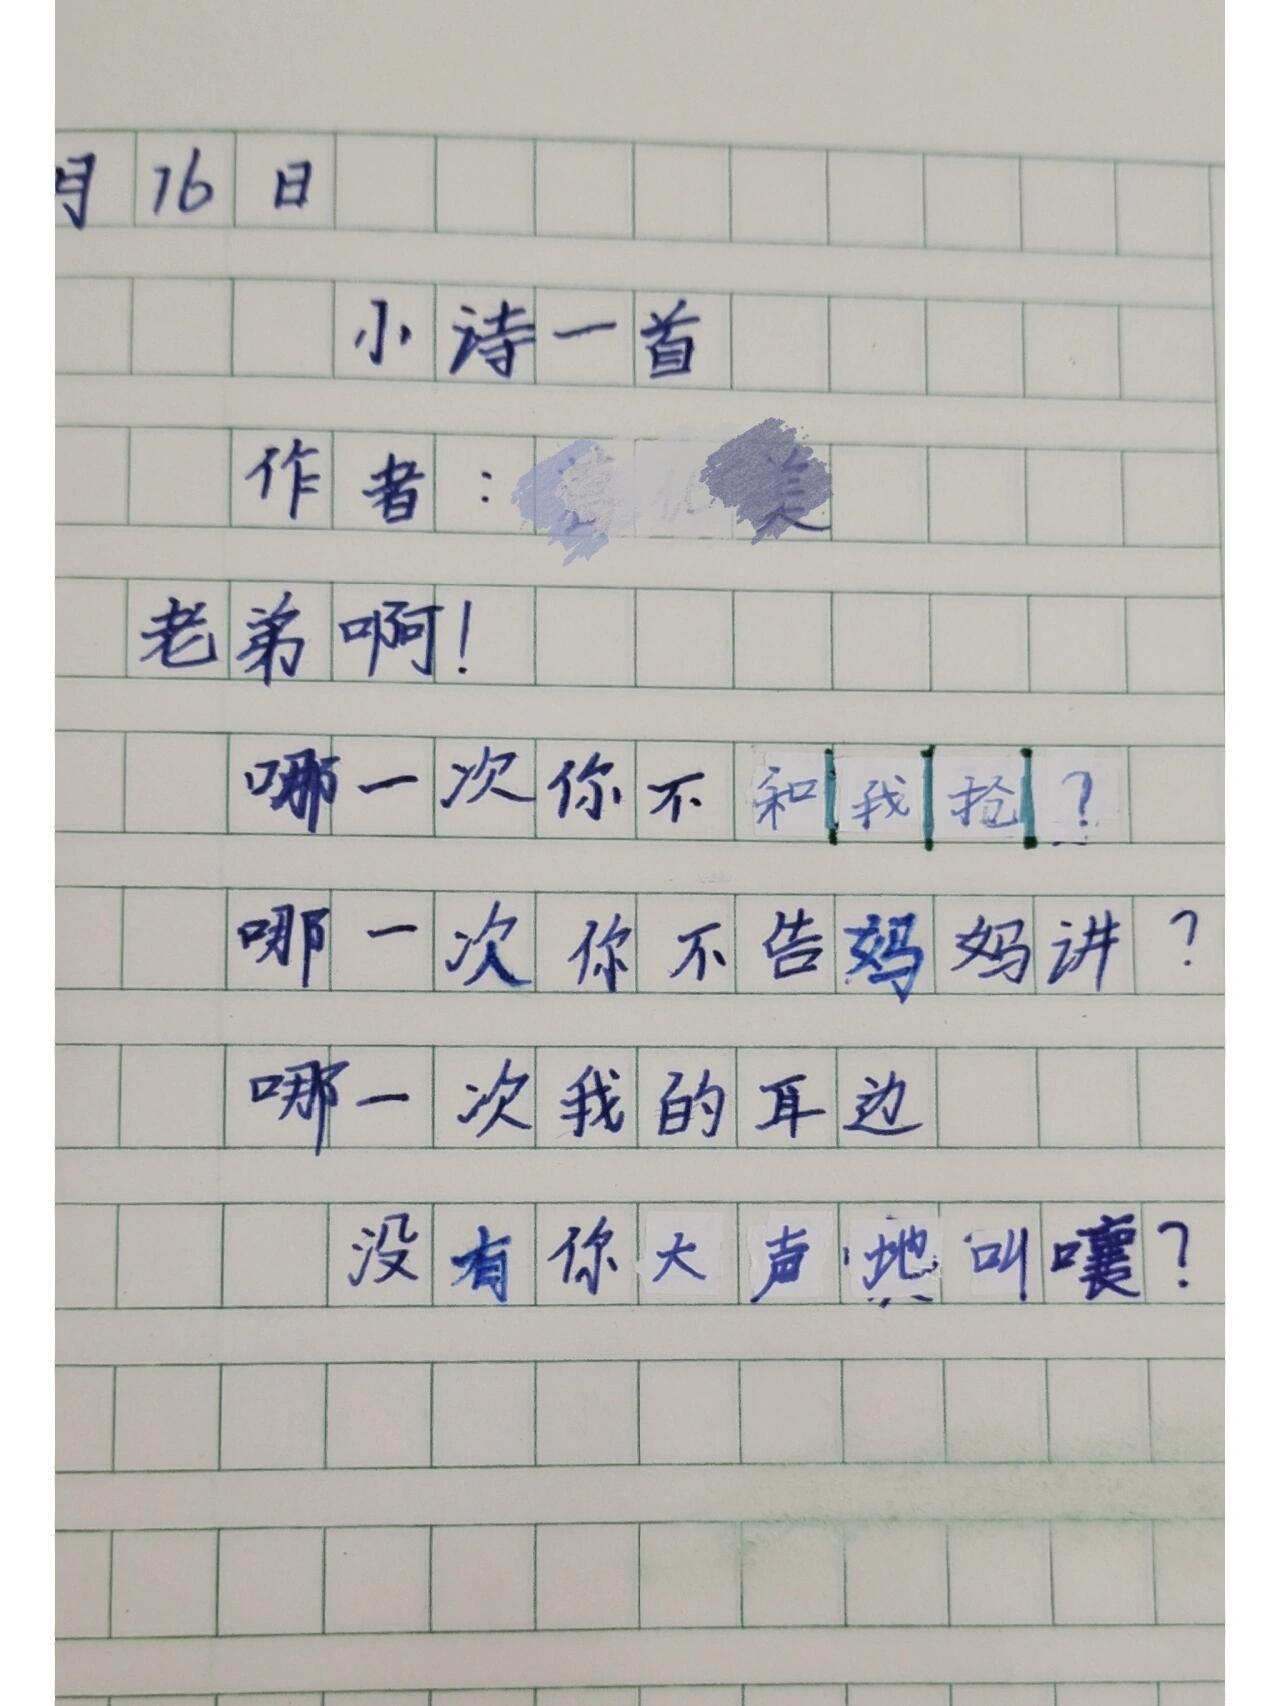 月16日
小诗一首
作者：
老弟啊！
哪一次你不和我抢？
哪一次你不告妈妈讲？
哪一次我的耳边
没有你大声地叫嚷？